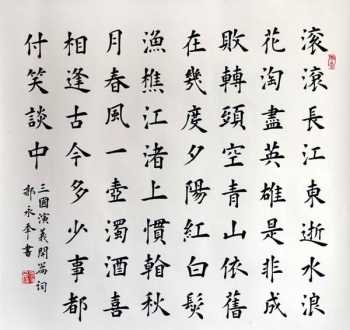 滾滾長江東逝水浪
花淘盡英雄是非成
敗轉頭空青山依舊
在幾度夕陽紅白髮
漁樵江渚上慣看秋
月春風一壺濁酒喜
相逢古今多少事都
付笑談中
三國演義開篇詞
永書